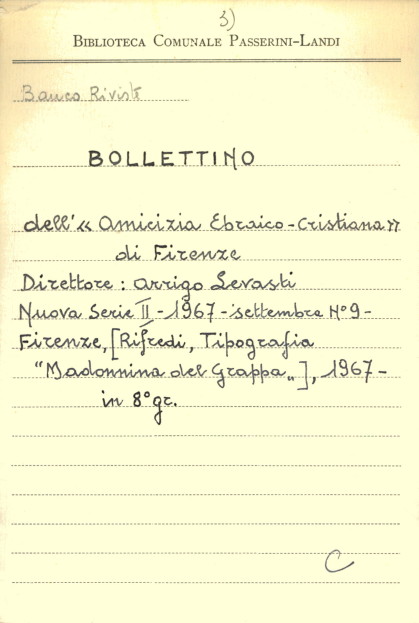 3)
BIBLIOTECA COMUNALE PASSERINI-LANDI
Banco Riviste
BOLLETTINO
dell'« Amicizia Ebraico-Cristiana »
di Firenze
Direttore : Arrigo Levasti
Nuova Serie II - 1967 - settembre N° 9 -
Firenze, [Rifredi, Tipografia
"Madonnina del Grappa„], 1967 -
in 8° gr.
C